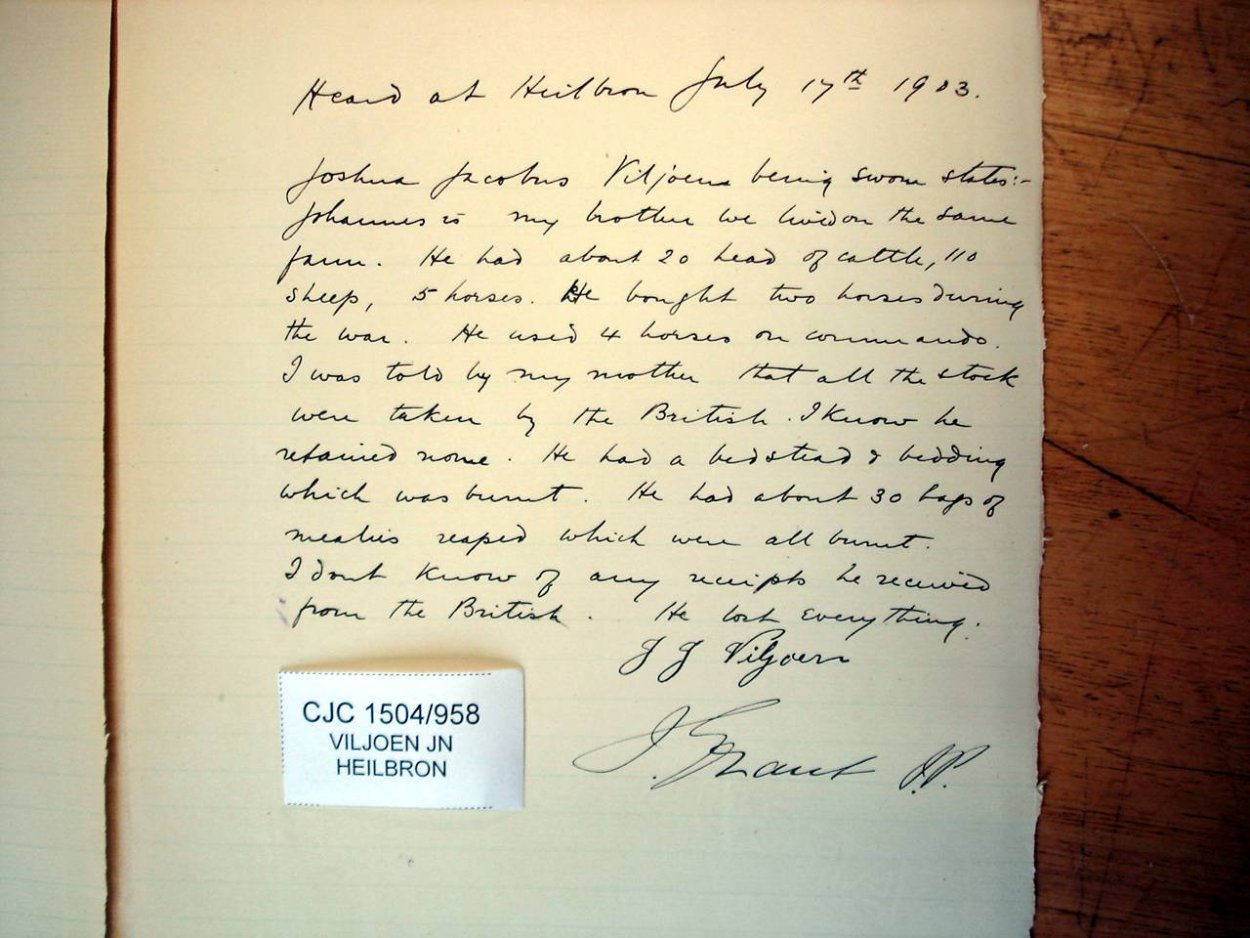 Heard at Heilbron July 17th 1903.
Joshua Jacobus Viljoen being sworn states:-
Johannes is my brother we lived on the same
farm. He had about 20 head of cattle, 110
sheep, 5 horses. He bought two horses during
the war. He used 4 horses on commando.
I was told by my mother that all the stock
were taken by the British. I know he
retained none. He had a bedstead & bedding
which was burnt. He had about 30 bags of
mealies reaped which were all burnt.
I dont know of any receipts he received
from the British. He lost everything.
J J Viljoen
J. Grant J.P.
CJC 1504/958
VILJOEN JN
HEILBRON